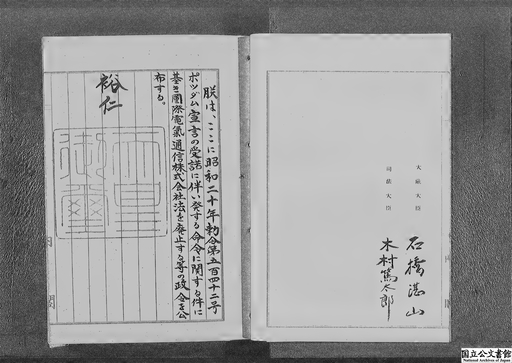 大蔵大臣 石橋湛山
司法大臣 木村篤太郎
朕は、ここに昭和二十年勅令第五百四十二号
ポツダム宣言の受諾に伴い発する命令に関する件に
基き国際電氣通信株式会社法を廃止する等の政令を公
布する。
裕仁
天皇
御璽
内閣
国立公文書館
National Archives of Japan